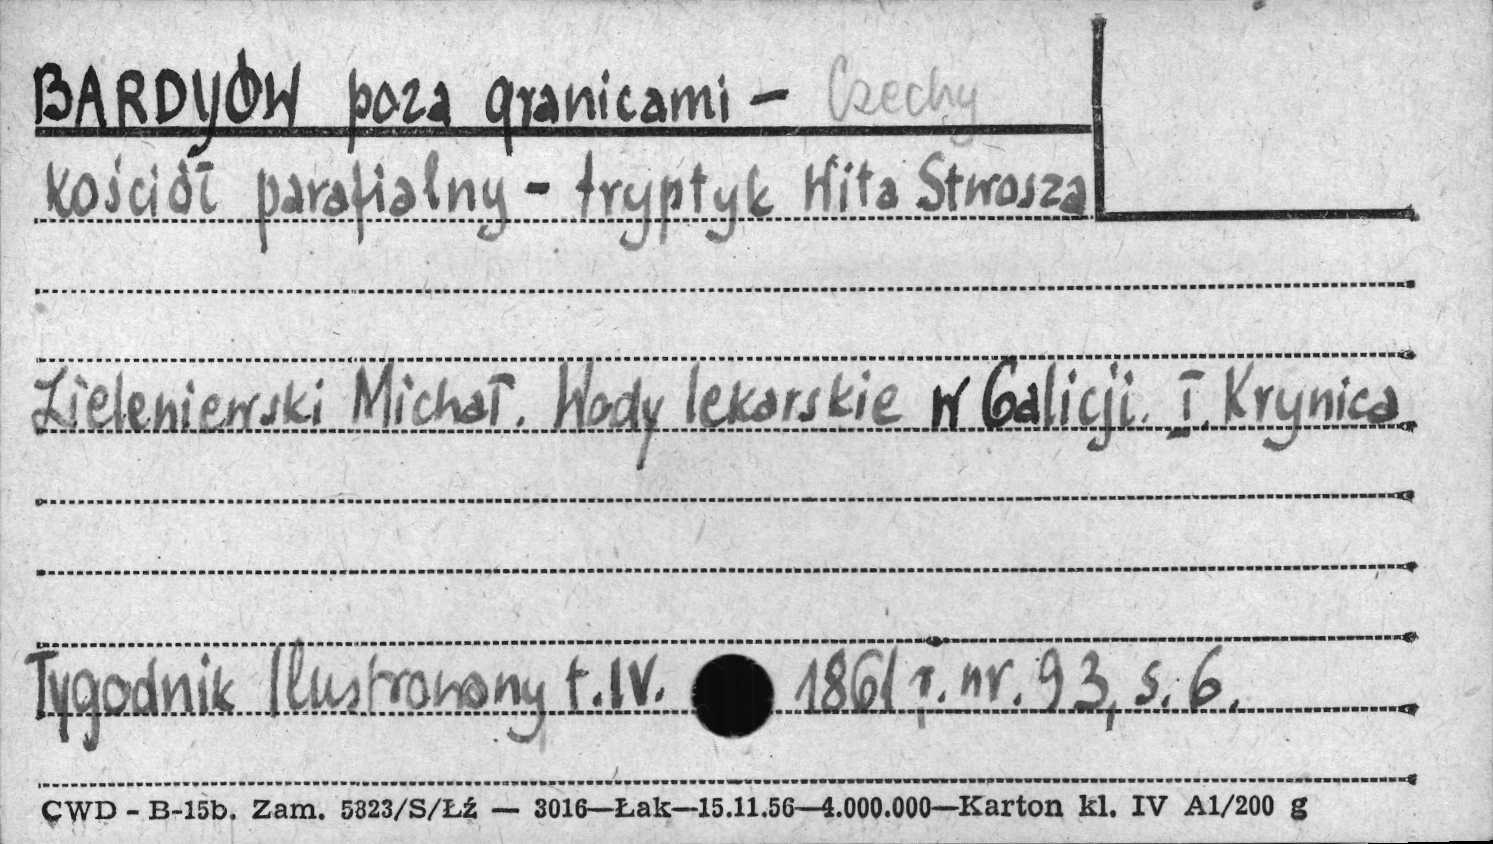 BARDYJÓW poza granicami - Czechy
kościół parafialny - tryptyk Wita Stwosza
Zieleniewski Michał. Wody lekarskie w Galicji. I. Krynica
Tygodnik Ilustrowany t.IV. 1861 r. nr. 93, s. 6.
CWD - B-15b. Zam. 5823/S/Łź — 3016—Łak—15.11.56—4.000.000—Karton kl. IV A1/200 g